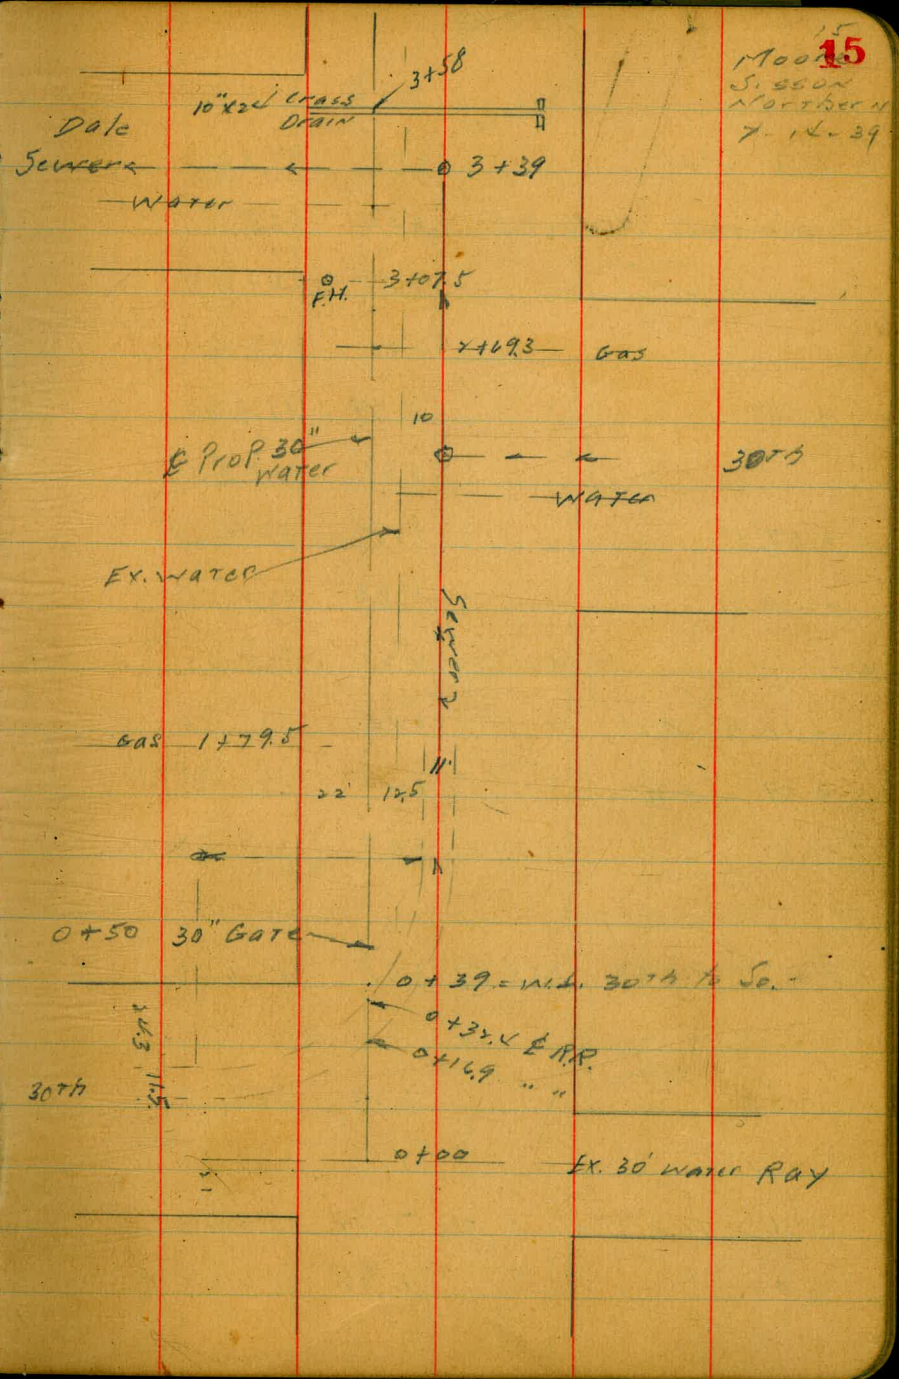 15
15
Moore
Sisson
Northern
7-14-39
3+58
10"x24' Cross
Drain
Dale
Sewer
3+39
Water
3+07.5
F.H.
2+69.3
Gas
10
℄ Prop. 30"
Water
30Th
Water
Ex. Water
Sewer
Gas 1+79.5
11'
22' 12.5
0+50 30" Gate
0+39 = W.L. 30Th to So.
0+32.4 ℄ R.R.
0+16.9 " "
11.5
30Th
0+00
Ex. 30" Water Ray